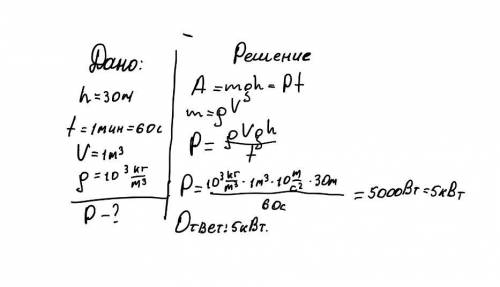 Дано:
h=30м
t=1мин=60с
V=1м³
ρ=10³ кг/м³
P-?
Решение
A=mgh=Pt
m=ρV
P=ρVgh/t
P=10³кг/м³·1м³·10м/с²·30м/60с=5000Вт=5кВт
Ответ:5кВт.